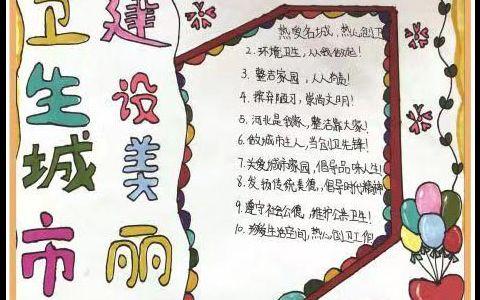 建设美丽
卫生城市
热爱名城,热心创卫
2.环境卫生,人人做起!
3.整洁家园,人人有责!
4.摈弃陋习,崇尚文明!
5.河北是我家,整洁靠大家!
6.做城市主人,当创卫先锋!
7.关爱城市家园,倡导品味人生!
8.发扬传统美德,倡导时代精神
9.遵守社会公德,维护公共卫生!
10.珍惜生活空间,热心创卫工作